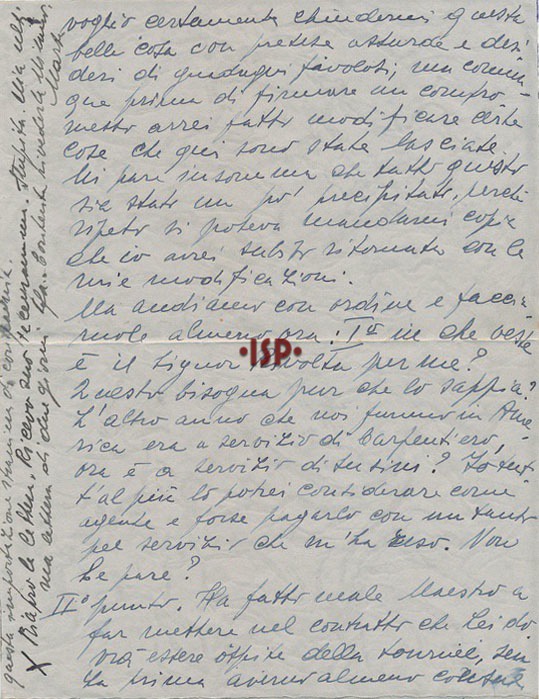 voglio certamente chiudermi questa
bella cosa con pretese assurde e desi
deri di guadagni favolosi; ma comun
que prima di firmare un compro-
messo avrei fatto modificare certe
cose che qui sono state lasciate.
Mi pare insomma che tutto questo
sia stato un po' precipitato, perchè
ripeto si poteva mandarmi copia
che io avrei subito ritornata con le
mie modificazioni.
Ma andiamo con ordine e faccia
mole almeno ora: I° in che veste
è il Signor per me?
Questo bisogna pur che lo sappia?
L'altro anno che noi fummo in Ame
rica era a servizio di Carpentiero,
ora è a servizio di ? Io tut
t'al più lo potrei considerare come
agente e forse pagarlo con un tanto
pel servizio che m'ha reso. Non
Le pare?
II° punto. Ha fatto male Maestro a
far mettere nel contratto che Lei do
vrà essere ospite della tournée, sen
za prima avermi almeno
questa impostazione
X Riapro la lettera. Ricevo suo telegramma. Stupita
mia lettera di due giorni fa. Contenta
ISP